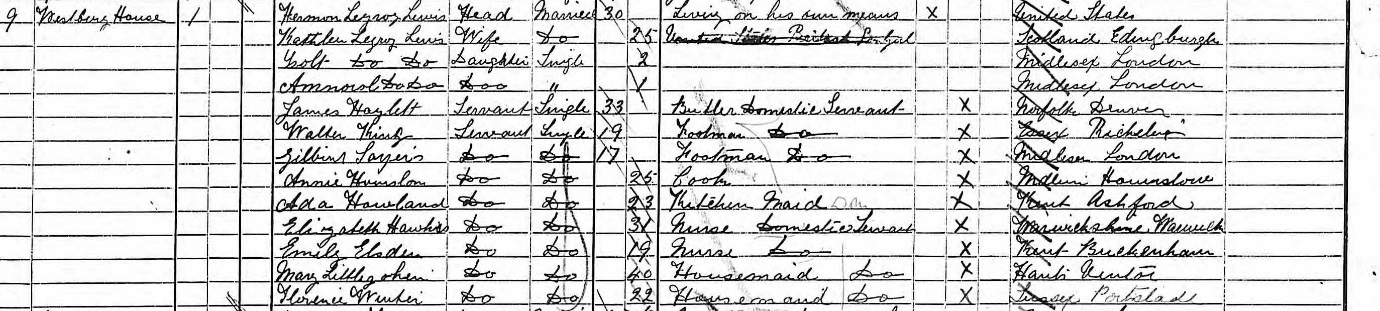 9 Westberg House 1 Hermon Legroy Lewis Head Married 30 Living on his own means X United States
Kathleen Legroy Lewis Wife Do 25 Scotland Edingburgh
Do Do Daughter Single 2 Midlesex London
Do Do Doo " 1 Midlesex London
James Haylett Servant Single 33 Butler Domestic Servant X Norfolk Denver
Walter King Servant Single 19 Footman Do X Essex
Gilbins Sayers Do Do 17 Footman Do X Midlesex London
Annie Do Do 25 Cook X Hounslow
Ada Howland Do Do 23 Kitchen Maid Dom X Kent Ashford
Elizabeth Hawkis Do Do 31 Nurse Domestic Servant X Warwickshire Warwick
Emily Elsden Do Do 19 Nurse Do X Kent Buckenham
Mary Littlejohn Do Do 40 Housemaid Do X Hants Ventor
Florence Winter Do Do 22 Housemaid Do X Sussex Portslade